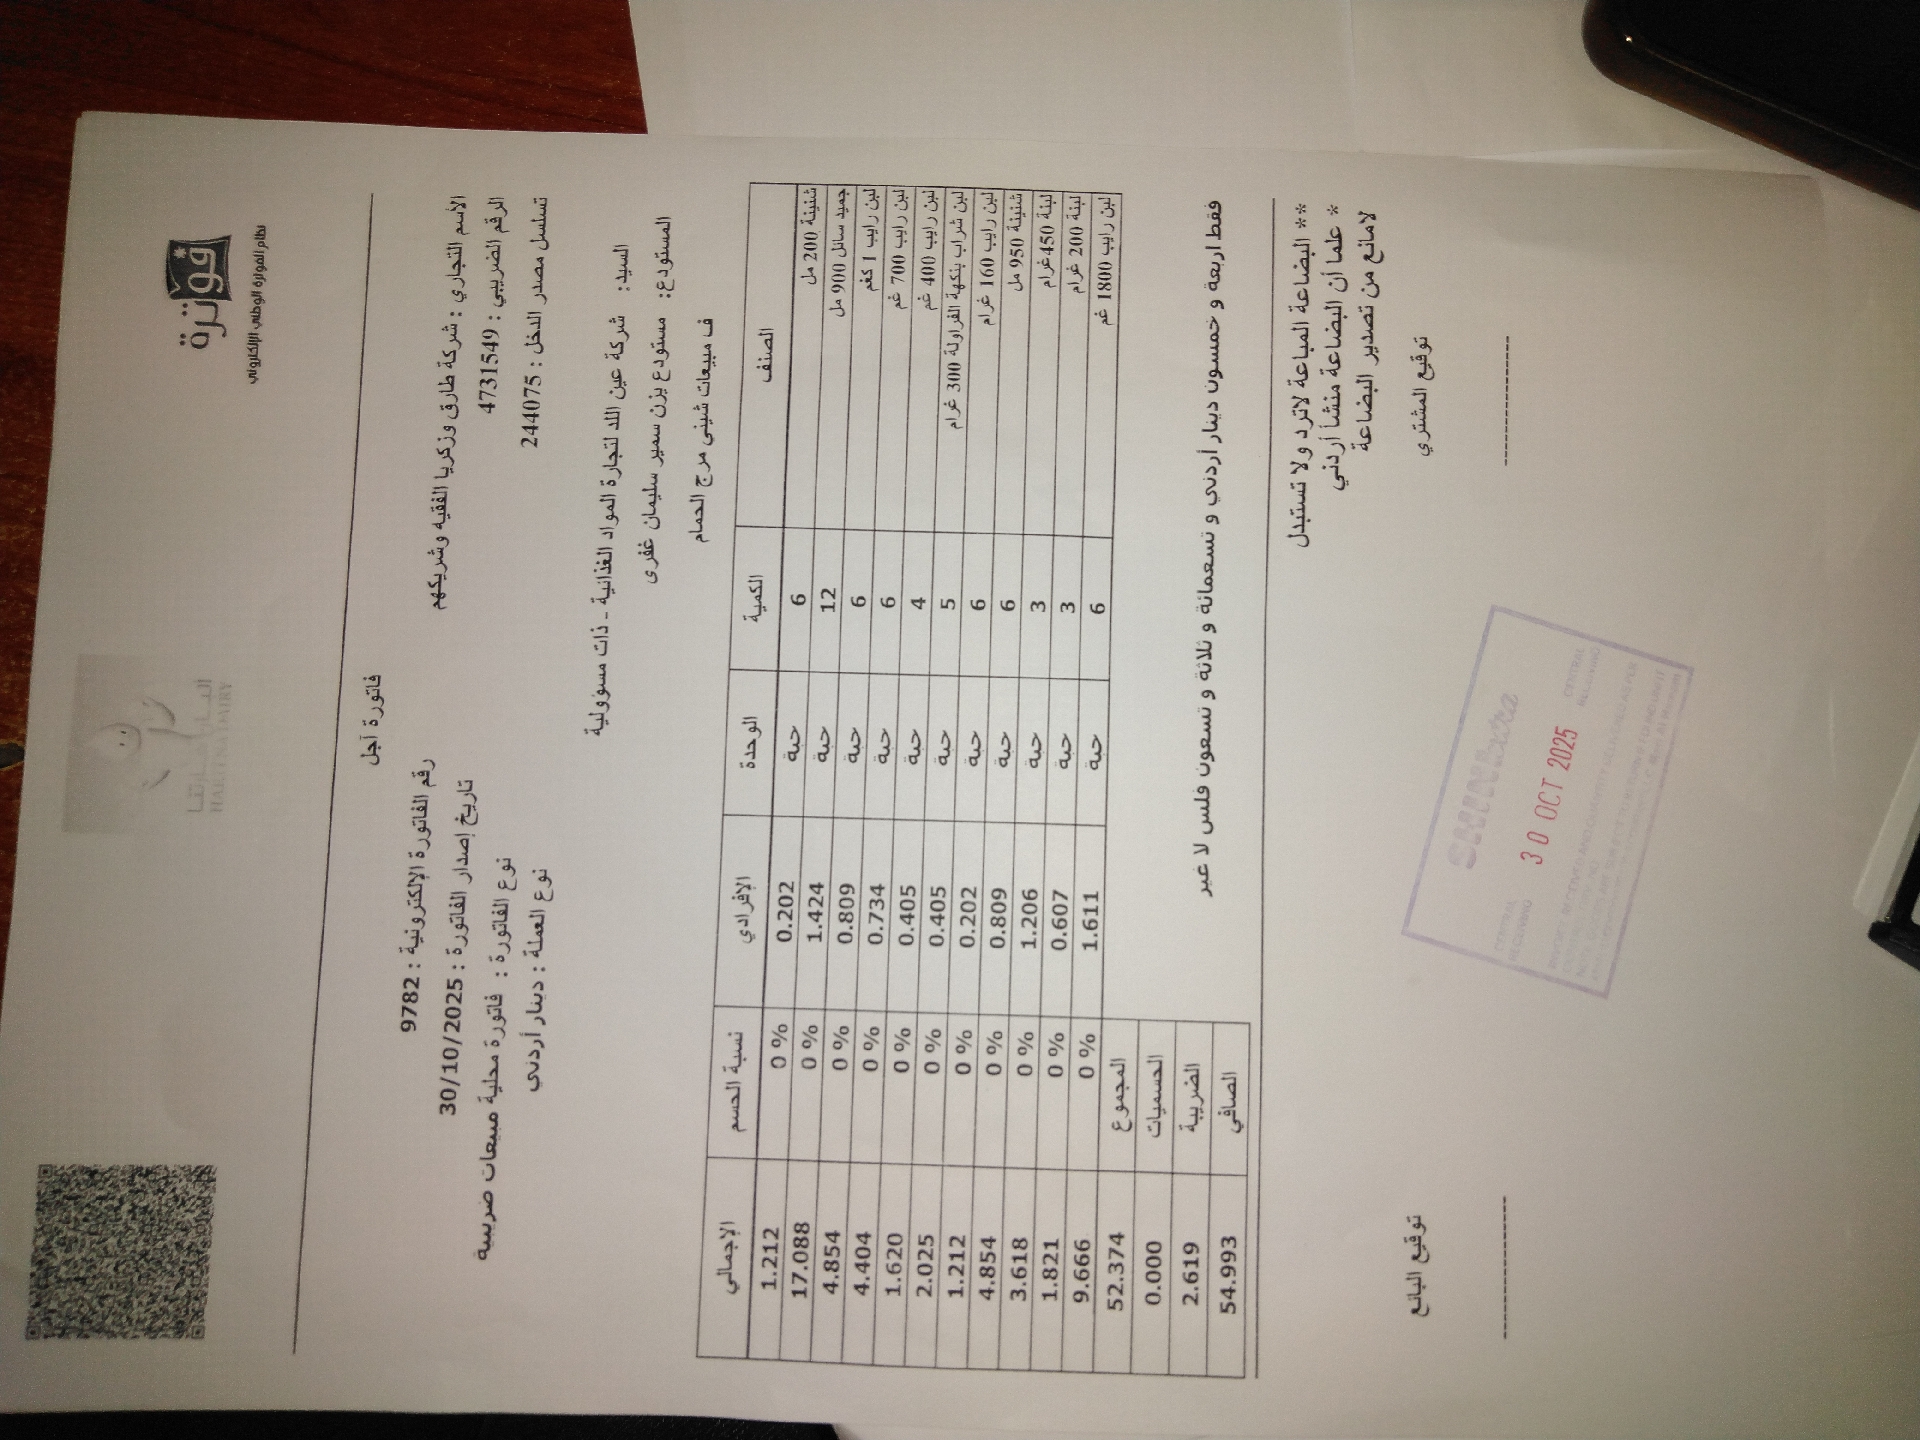 فوترة
نظام الفوترة الوطني الإلكتروني
HALEENA DAIRY
فاتورة آجل
الأسم التجاري : شركة طارق وزكريا الفقيه وشريكهم
الرقم الضريبي : 4731549
تسلسل مصدر الدخل : 244075
رقم الفاتورة الإلكترونية : 9782
تاريخ إصدار الفاتورة : 30/10/2025
نوع الفاتورة : فاتورة محلية مبيعات ضريبية
نوع العملة : دينار أردني
السيد: شركة عين اللد لتجارة المواد الغذائية - ذات مسؤولية
المستودع: مستودع يزن سمير سليمان غفرى
ف مبيعات شيني مرج الحمام
الصنف الكمية الوحدة الإفرادي نسبة الحسم الإجمالي
شنينة 200 مل 6 حبة 0.202 0 % 1.212
جميد سائل 900 مل 12 حبة 1.424 0 % 17.088
لبن رايب 1 كغم 6 حبة 0.809 0 % 4.854
لبن رايب 700 غم 6 حبة 0.734 0 % 4.404
لبن رايب 400 غم 4 حبة 0.405 0 % 1.620
لبن شراب بنكهة الفراولة 300 غرام 5 حبة 0.405 0 % 2.025
لبن رايب 160 غرام 6 حبة 0.202 0 % 1.212
شنينة 950 مل 6 حبة 0.809 0 % 4.854
لبنة 450غرام 3 حبة 1.206 0 % 3.618
لبنة 200 غرام 3 حبة 0.607 0 % 1.821
لبن رايب 1800 غم 6 حبة 1.611 0 % 9.666
المجموع 52.374
الحسميات 0.000
الضريبة 2.619
الصافي 54.993
فقط اربعة و خمسون دينار أردني و تسعمائة و ثلاثة و تسعون فلس لا غير
** البضاعة المباعة لاترد ولا تستبدل
* علما أن البضاعة منشأ أردني
لامانع من تصدير البضاعة
توقيع المشتري
توقيع البائع
CENTRAL RECEIVING
30 OCT 2025
CENTRAL RECEIVING